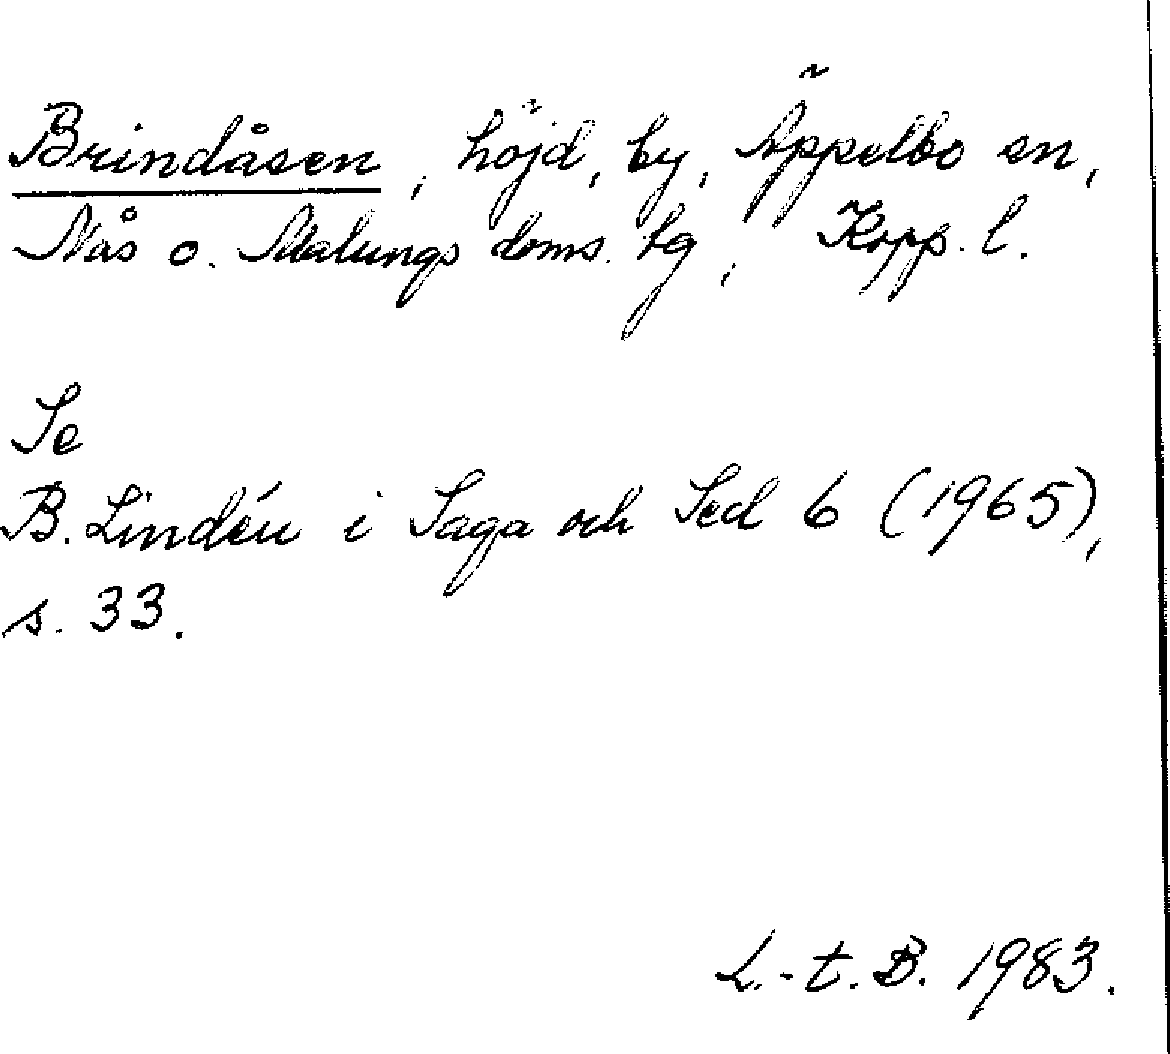 Brindåsen, höjd, by, Äppelbo sn,
Nås o. Malungs doms. hg, Kopp. l.
Se
B. Lindén i Saga och Sed 6 (1965),
s. 33.
L.-t. B. 1983.